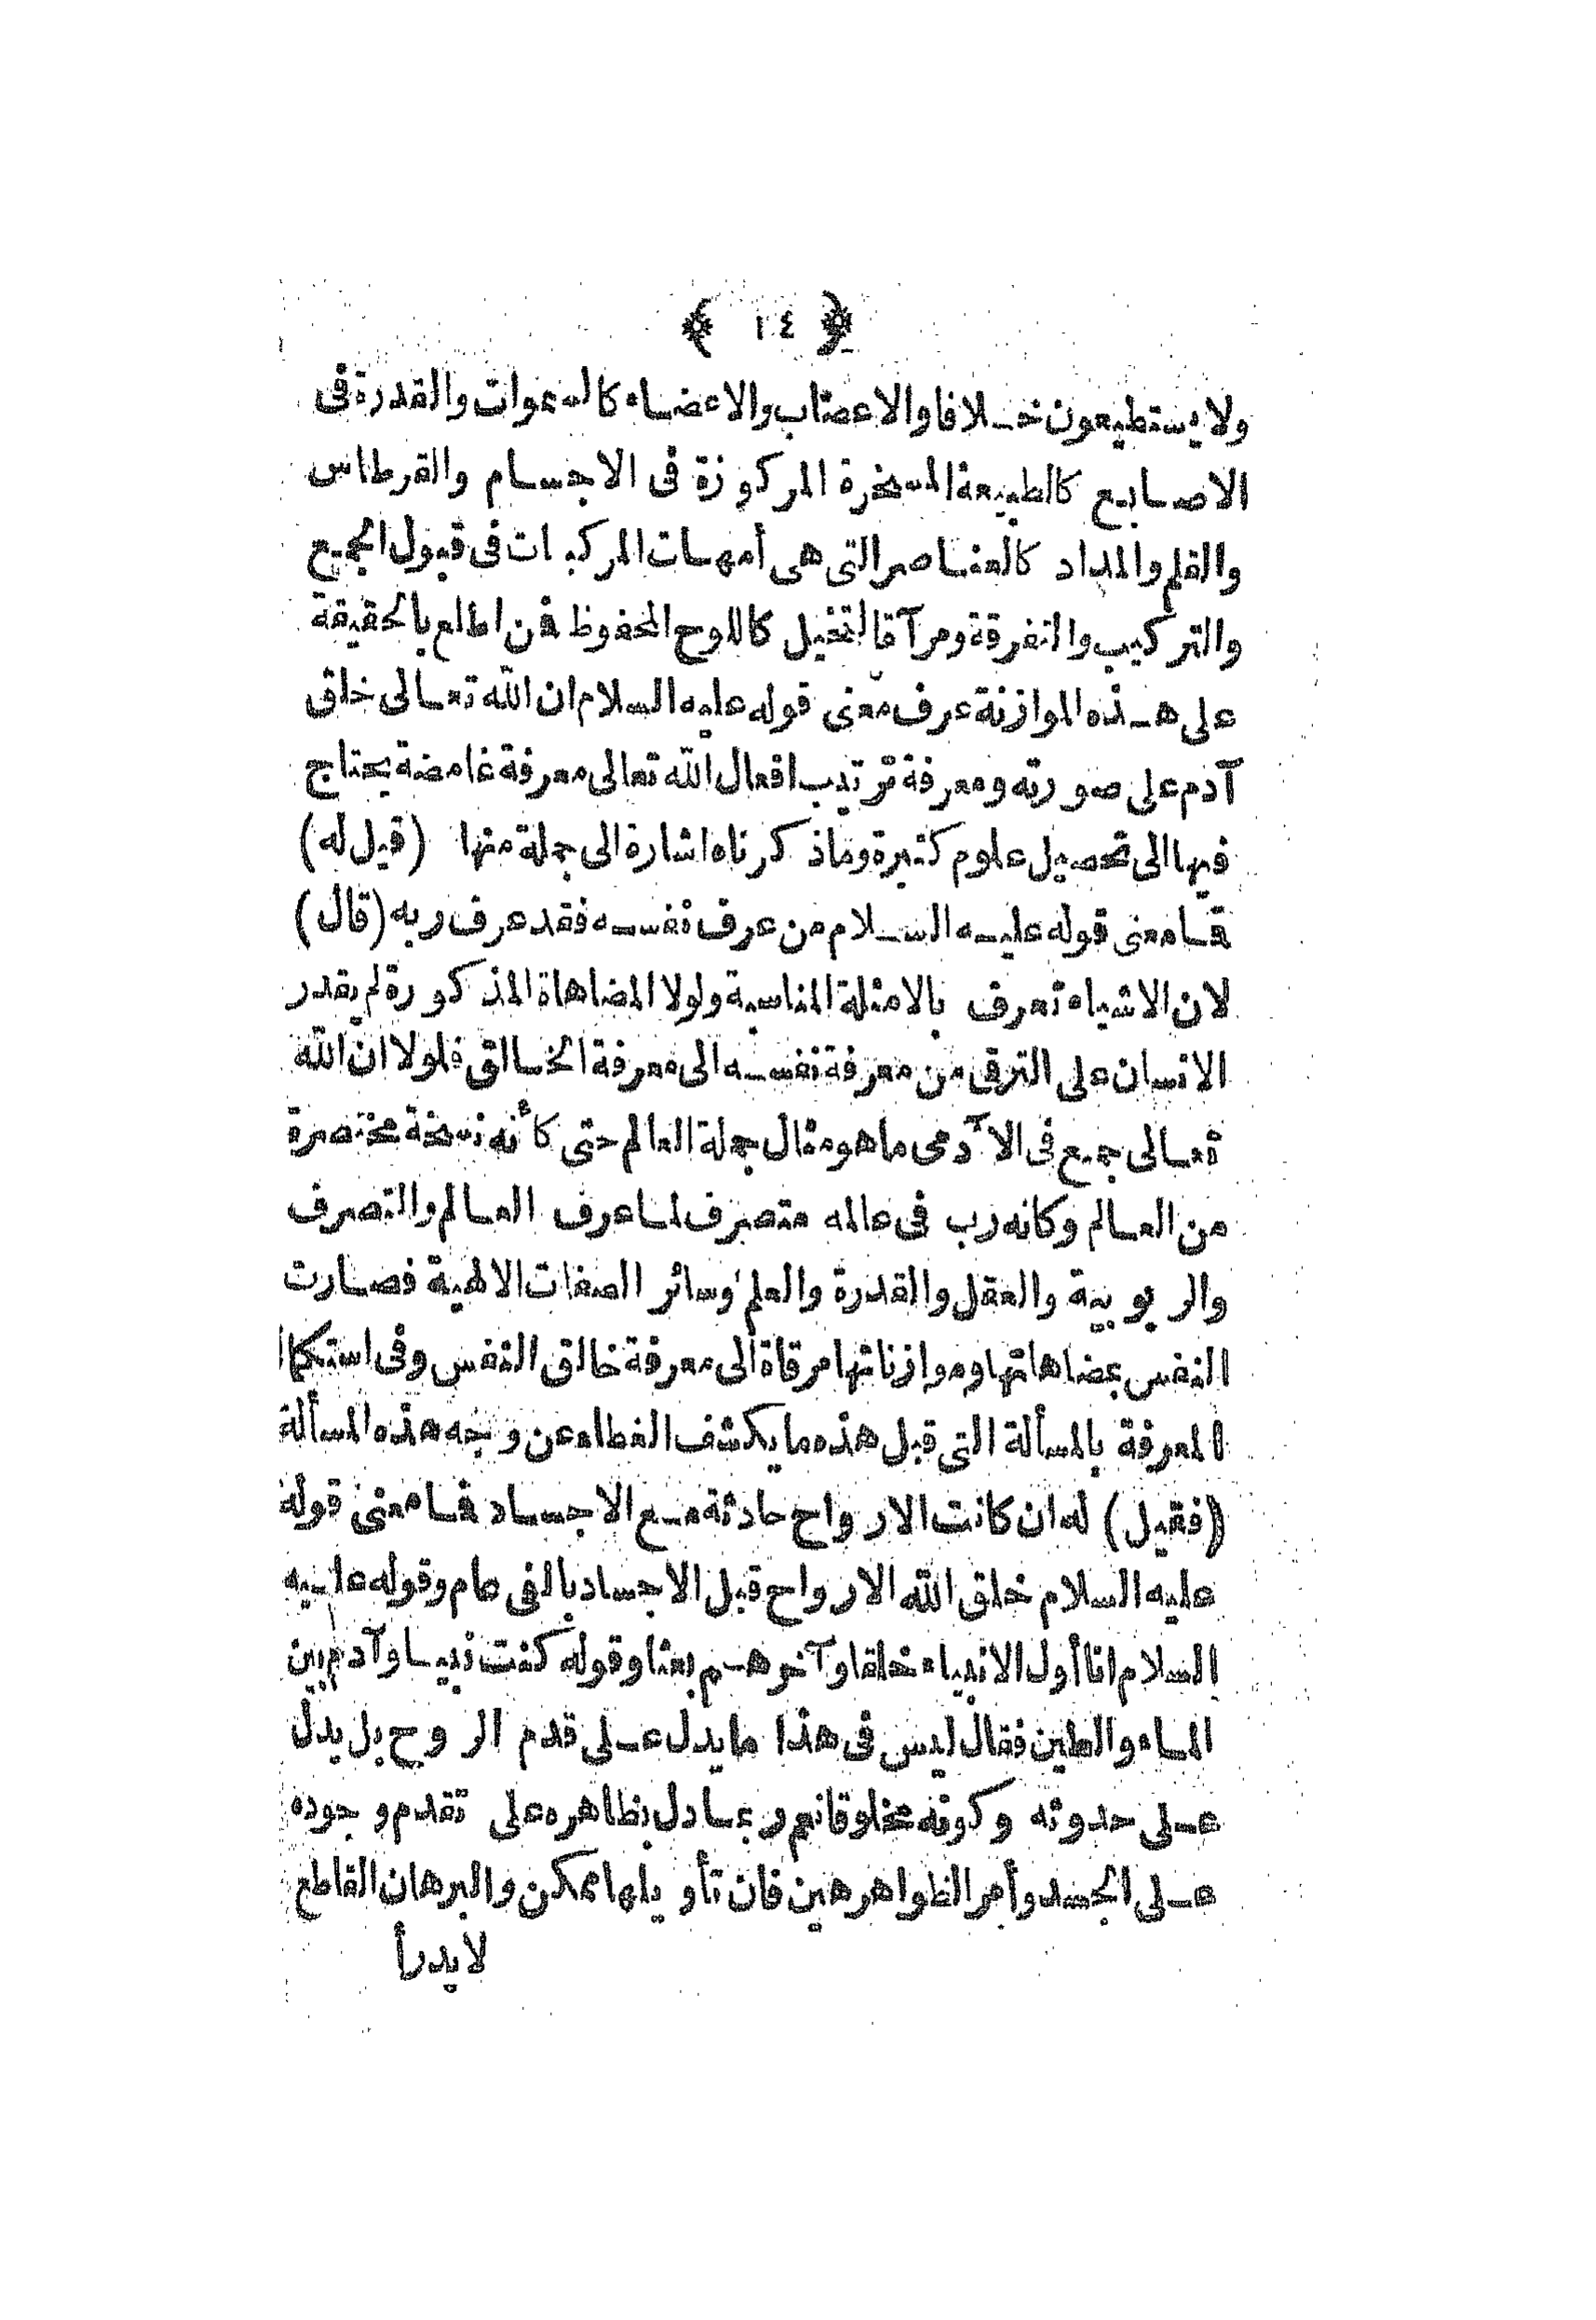 ﴿ ١٤ ﴾
ولا يستطيعون خلافا والاعصاب والاعضاء كالسموات والقدرة فى
الاصابع كالطبيعة المسخرة المركوزة فى الاجسام والقرطاس
والقلم والمداد كالعناصر التى هى أمهات المركبات فى قبول الجمع
والتركيب والتفرقة ومرآة التخيل كاللوح المحفوظ فمن اطلع بالحقيقة
على هذه الموازنة عرف معنى قوله عليه السلام ان الله تعالى خلق
آدم على صورته ومعرفة ترتيب افعال الله تعالى معرفة غامضة يحتاج
فيها الى تحصيل علوم كثيرة وماذكرناه اشارة الى جملة منها (قيل له)
فما معنى قوله عليه السلام من عرف نفسه فقد عرف ربه (قال)
لان الاشياء تعرف بالامثلة المناسبة ولولا المضاهاة المذكورة لم يقدر
الانسان على الترقى من معرفة نفسه الى معرفة الخالق فلولا ان الله
تعالى جمع فى الآدمى ما هو مثال جملة العالم حتى كأنه نسخة مختصرة
من العالم وكانه رب فى عالمه متصرف لما عرف العالم والتصرف
والربوبية والعقل والقدرة والعلم وسائر الصفات الالهية فصارت
النفس بمضاهاتها وموازناتها مرقاة الى معرفة خالق النفس وفى استكمال
المعرفة بالمسألة التى قبل هذه ما يكشف الغطاء عن وجه هذه المسألة
(فقيل) له ان كانت الارواح حادثة مع الاجساد فما معنى قوله
عليه السلام خلق الله الارواح قبل الاجساد بالفى عام وقوله عليه
السلام انا أول الانبياء خلقا وآخرهم بعثا وقوله كنت نبيا وآدم بين
الماء والطين فقال ليس فى هذا ما يدل على قدم الروح بل يدل
على حدوثه وكونه مخلوقا نعم ربما دل بظاهره على تقدم وجوده
على الجسد وأمر الظواهر هين فان تأويلها ممكن والبرهان القاطع
لا يدرأ